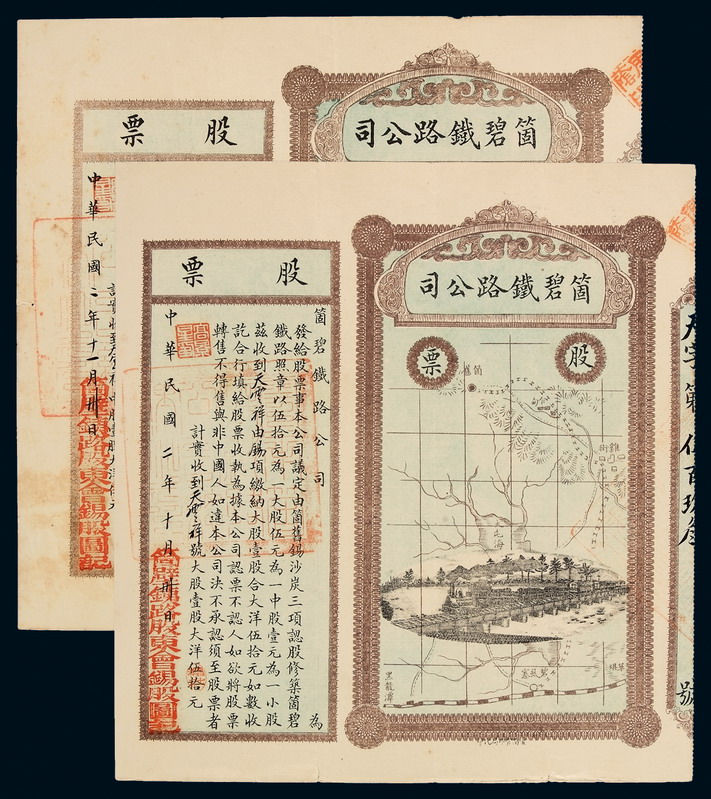 箇碧鐵路公司
股票
中華民國二年十一月卅日
箇碧鐵路股東會錫股圖記
箇碧鐵路公司
股票
箇舊
黑龍潭
號
股票
箇碧鐵路公司 為
發給股票事本公司議定由箇舊錫沙炭三項認股修築箇碧
鐵路照章以伍拾元為一大股伍元為一中股壹元為一小股
茲收到天雲祥由錫項繳納大股壹股合大洋伍拾元如數收
訖合行填給股票收執為據本公司認票不認人如欲將股票
轉售不得售與非中國人如違本公司決不承認須至股票者
計實收到天雲祥號大股壹股大洋伍拾元
中華民國二年十月卅日
箇碧鐵路股東會錫股圖記